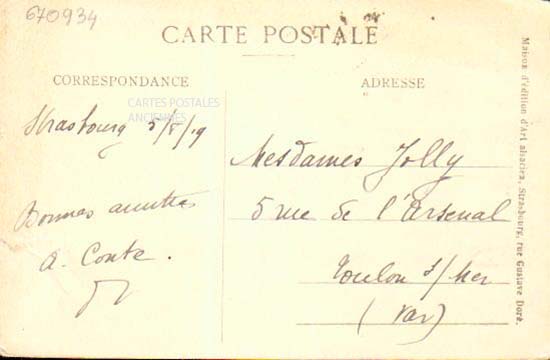 670934
CARTE POSTALE
CORRESPONDANCE
ADRESSE
CARTES POSTALES
ANCIENNES
Strasbourg 5/8/19
Bonnes amitiés
A. Conte.
Mesdames Jolly
5 rue de l'Arsenal
Toulon s/Mer
(Var)
Maison d'édition d'Art alsacien, Strasbourg, rue Gustave Doré.